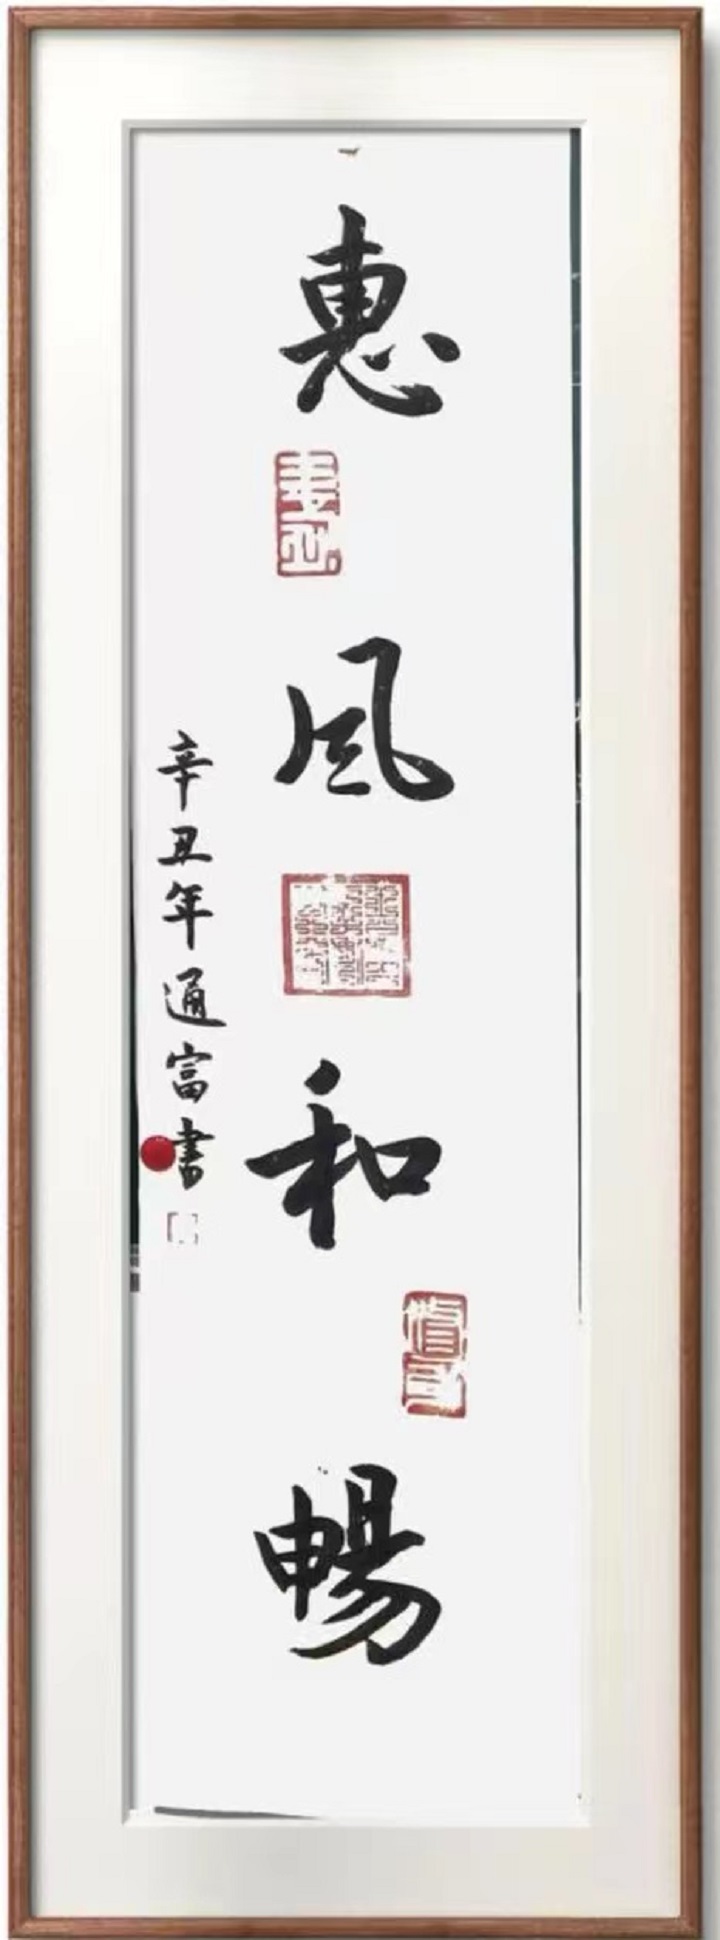 惠風和暢
辛丑年通富書